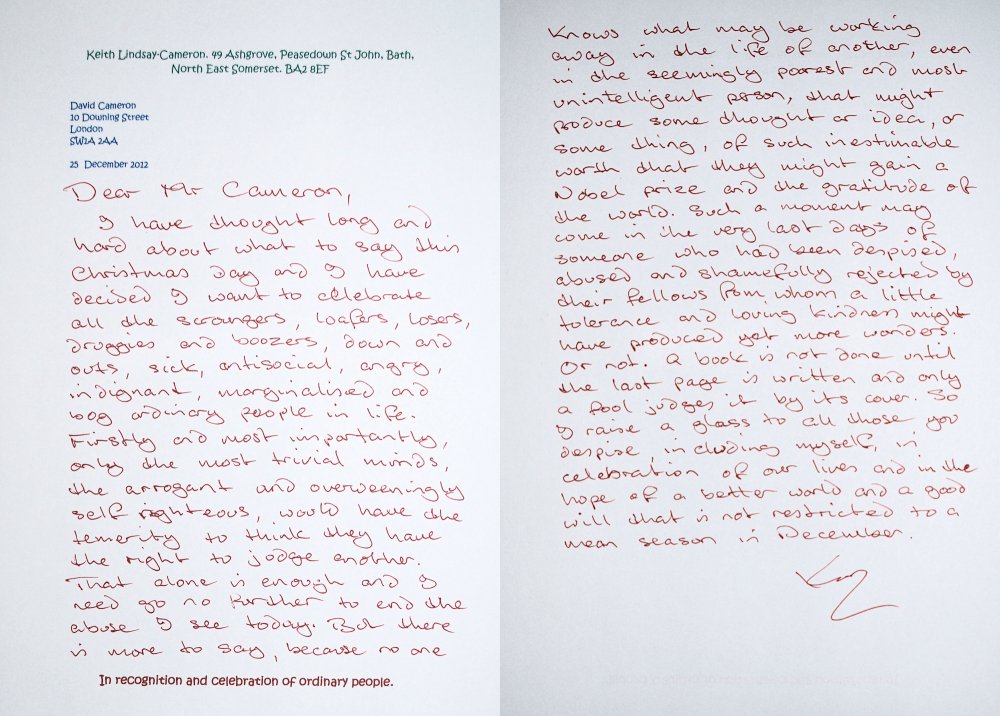 Keith Lindsay-Cameron. 49 Ashgrove, Peasedown St John, Bath,
North East Somerset. BA2 8EF
David Cameron
10 Downing Street
London
SW1A 2AA
25 December 2012
Dear Mr Cameron,
I have thought long and
hard about what to say this
Christmas Day and I have
decided I want to celebrate
all the scroungers, loafers, losers,
druggies and boozers, down and
outs, sick, antisocial, angry,
indignant, marginalised and
bog ordinary people in life.
Firstly and most importantly,
only the most trivial minds,
the arrogant and overweeningly
self righteous, would have the
temerity to think they have
the right to judge another.
That alone is enough and I
need go no further to end the
abuse I see today. But there
is more to say, because no one
In recognition and celebration of ordinary people.
Knows what may be working
away in the life of another, even
in the seemingly poorest and most
unintelligent person, that might
produce some thought or idea, or
some thing, of such inestimable
worth that they might gain a
Nobel prize and the gratitude of
the world. Such a moment may
come in the very last days of
someone who had been despised,
abused and shamefully rejected by
their fellows from whom a little
tolerance and loving kindness might
have produced yet more wonders.
Or not. A book is not done until
the last page is written and only
a fool judges it by its cover. So
I raise a glass to all those you
despise, including myself, in
celebration of our lives and in the
hope of a better world and a good
will that is not restricted to a
mean season in December.